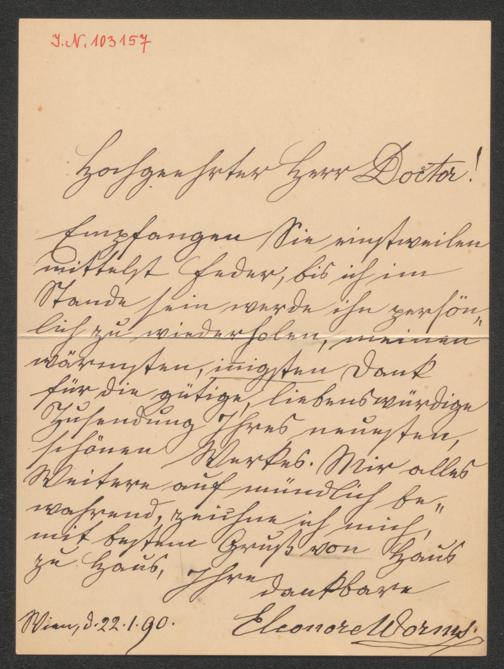 I. N. 103157
Hochgeehrter Herr Doctor!
Empfangen Sie einstweilen
mittelst Feder, bis ich im
Stande sein werde ihn persön„
lich zu wiederholen, meinen
wärmsten, inigsten Dank
für die gütige, liebenswürdige
Zusendung Ihres neuesten,
schönen Werkes. Mir alles
Weitere auf mündlich be„
wahrend, zeichne ich mich,
mit bestem Gruß von Haus
zu Haus,
Ihre
dankbare
Wien, d. 22.1.90.
Eleonore Worms.